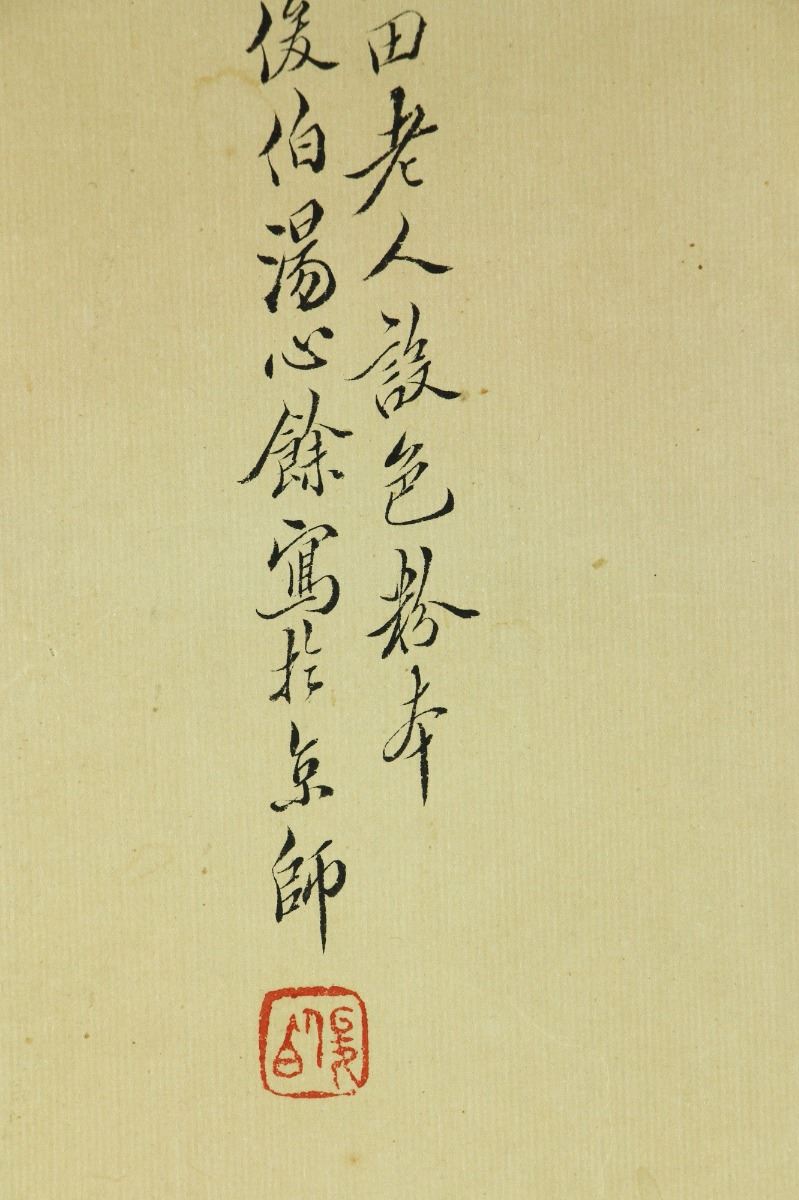 田老人設色粉本
俊伯湯心餘寫於京師